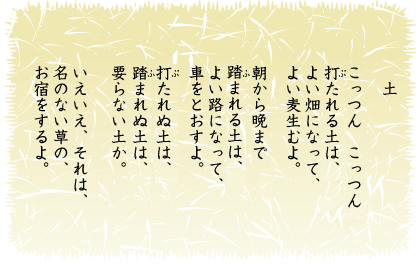 土
こっつん　こっつん
打たれる土は、
よい畑になって、
よい麦生むよ。
朝から晩まで
踏まれる土は、
よい路になって、
車をとおすよ。
打たれぬ土は、
踏まれぬ土は、
要らない土か。
いえいえ、それは、
名のない草の、
お宿をするよ。